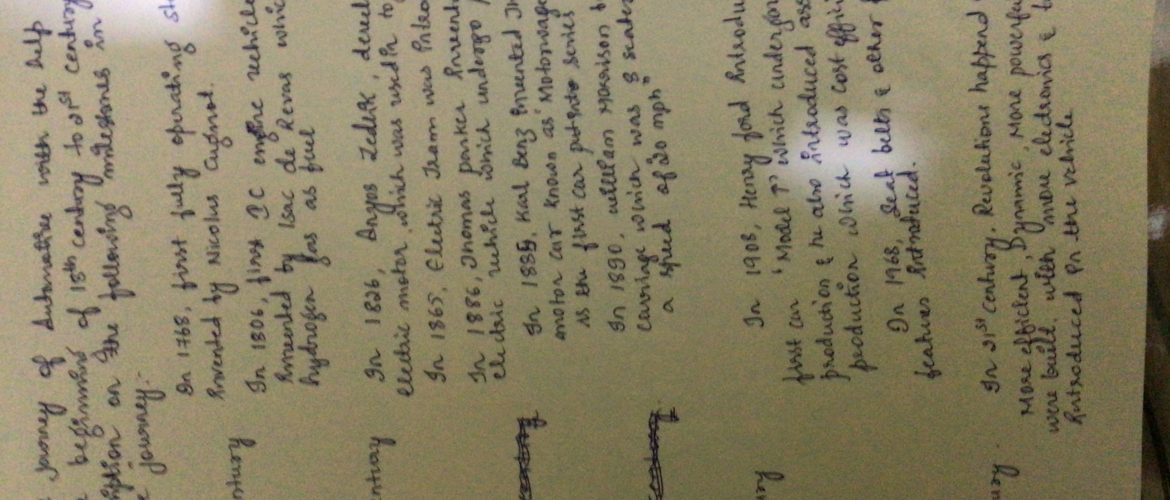 journey of Automative with the help
beginning of 18th century to 21st century
on the following milestones in
journey:-
In 1768, first fully operating
Invented by Nicolus Cugnot.
In 1806, first IC engine vehicle
Invented by Isac de Revas
hydrogen gas as fuel
In 1826, Anyos Jedlik,
electric motor, which was used in to
In 1865, Electric Tram was
In 1886, Thomas parker Invent
electric vehicle which undergo
In 1885, Karl Benz Invented
motor car known as 'Motorwagon
as the first car put into series
In 1890, william Morrison
carriage which was 8 seater
a speed of 20 mph"
In 1908, Henry ford Introdu
first car 'Model T' which undergo
production & he also introduced ass
production which was cost effi
In 1968, Seat belts & other
features Introduced.
In 21st century, Revolutions happend
More efficient, Dynmic, More powerful
were build with more electronics &
Introduced in the vehicle